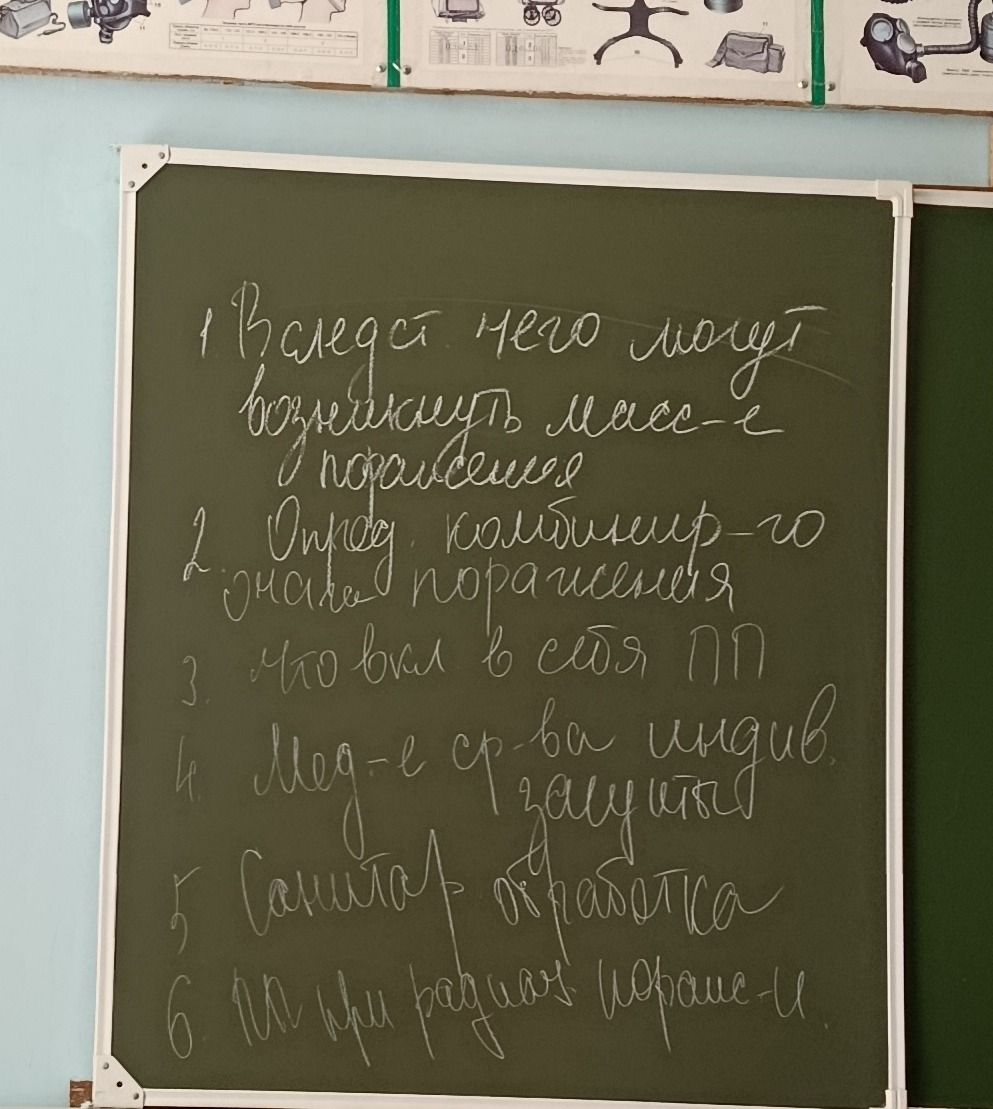 1 Вследст. чего могут
возникнуть масс-е
поражения
2. Опред. комбинир-го
очага поражения
3. Что вкл в себя ПП
4. Мед-е ср-ва индив.
защиты
5 Санитар обработка
6. ПП при радиац. пораж-и.